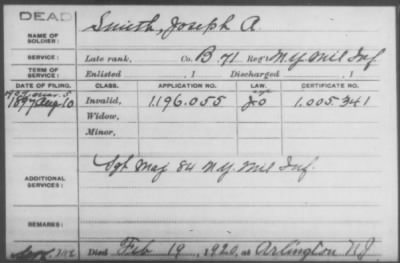 DEAD
NAME OF SOLDIER: Smith, Joseph A.
SERVICE: Late rank, Co. B. 71. Reg't N.Y. Mil Inf
TERM OF SERVICE: Enlisted , 1 Discharged , 1
DATE OF FILING. CLASS. APPLICATION NO. LAW. CERTIFICATE NO.
1897 Aug 10 Invalid, 1.196.055 1.005.341
Widow,
Minor,
ADDITIONAL SERVICES: Sgt Maj 84 N.Y. Mil Inf.
REMARKS:
Died Feb 19, 1920, at Arlington NJ